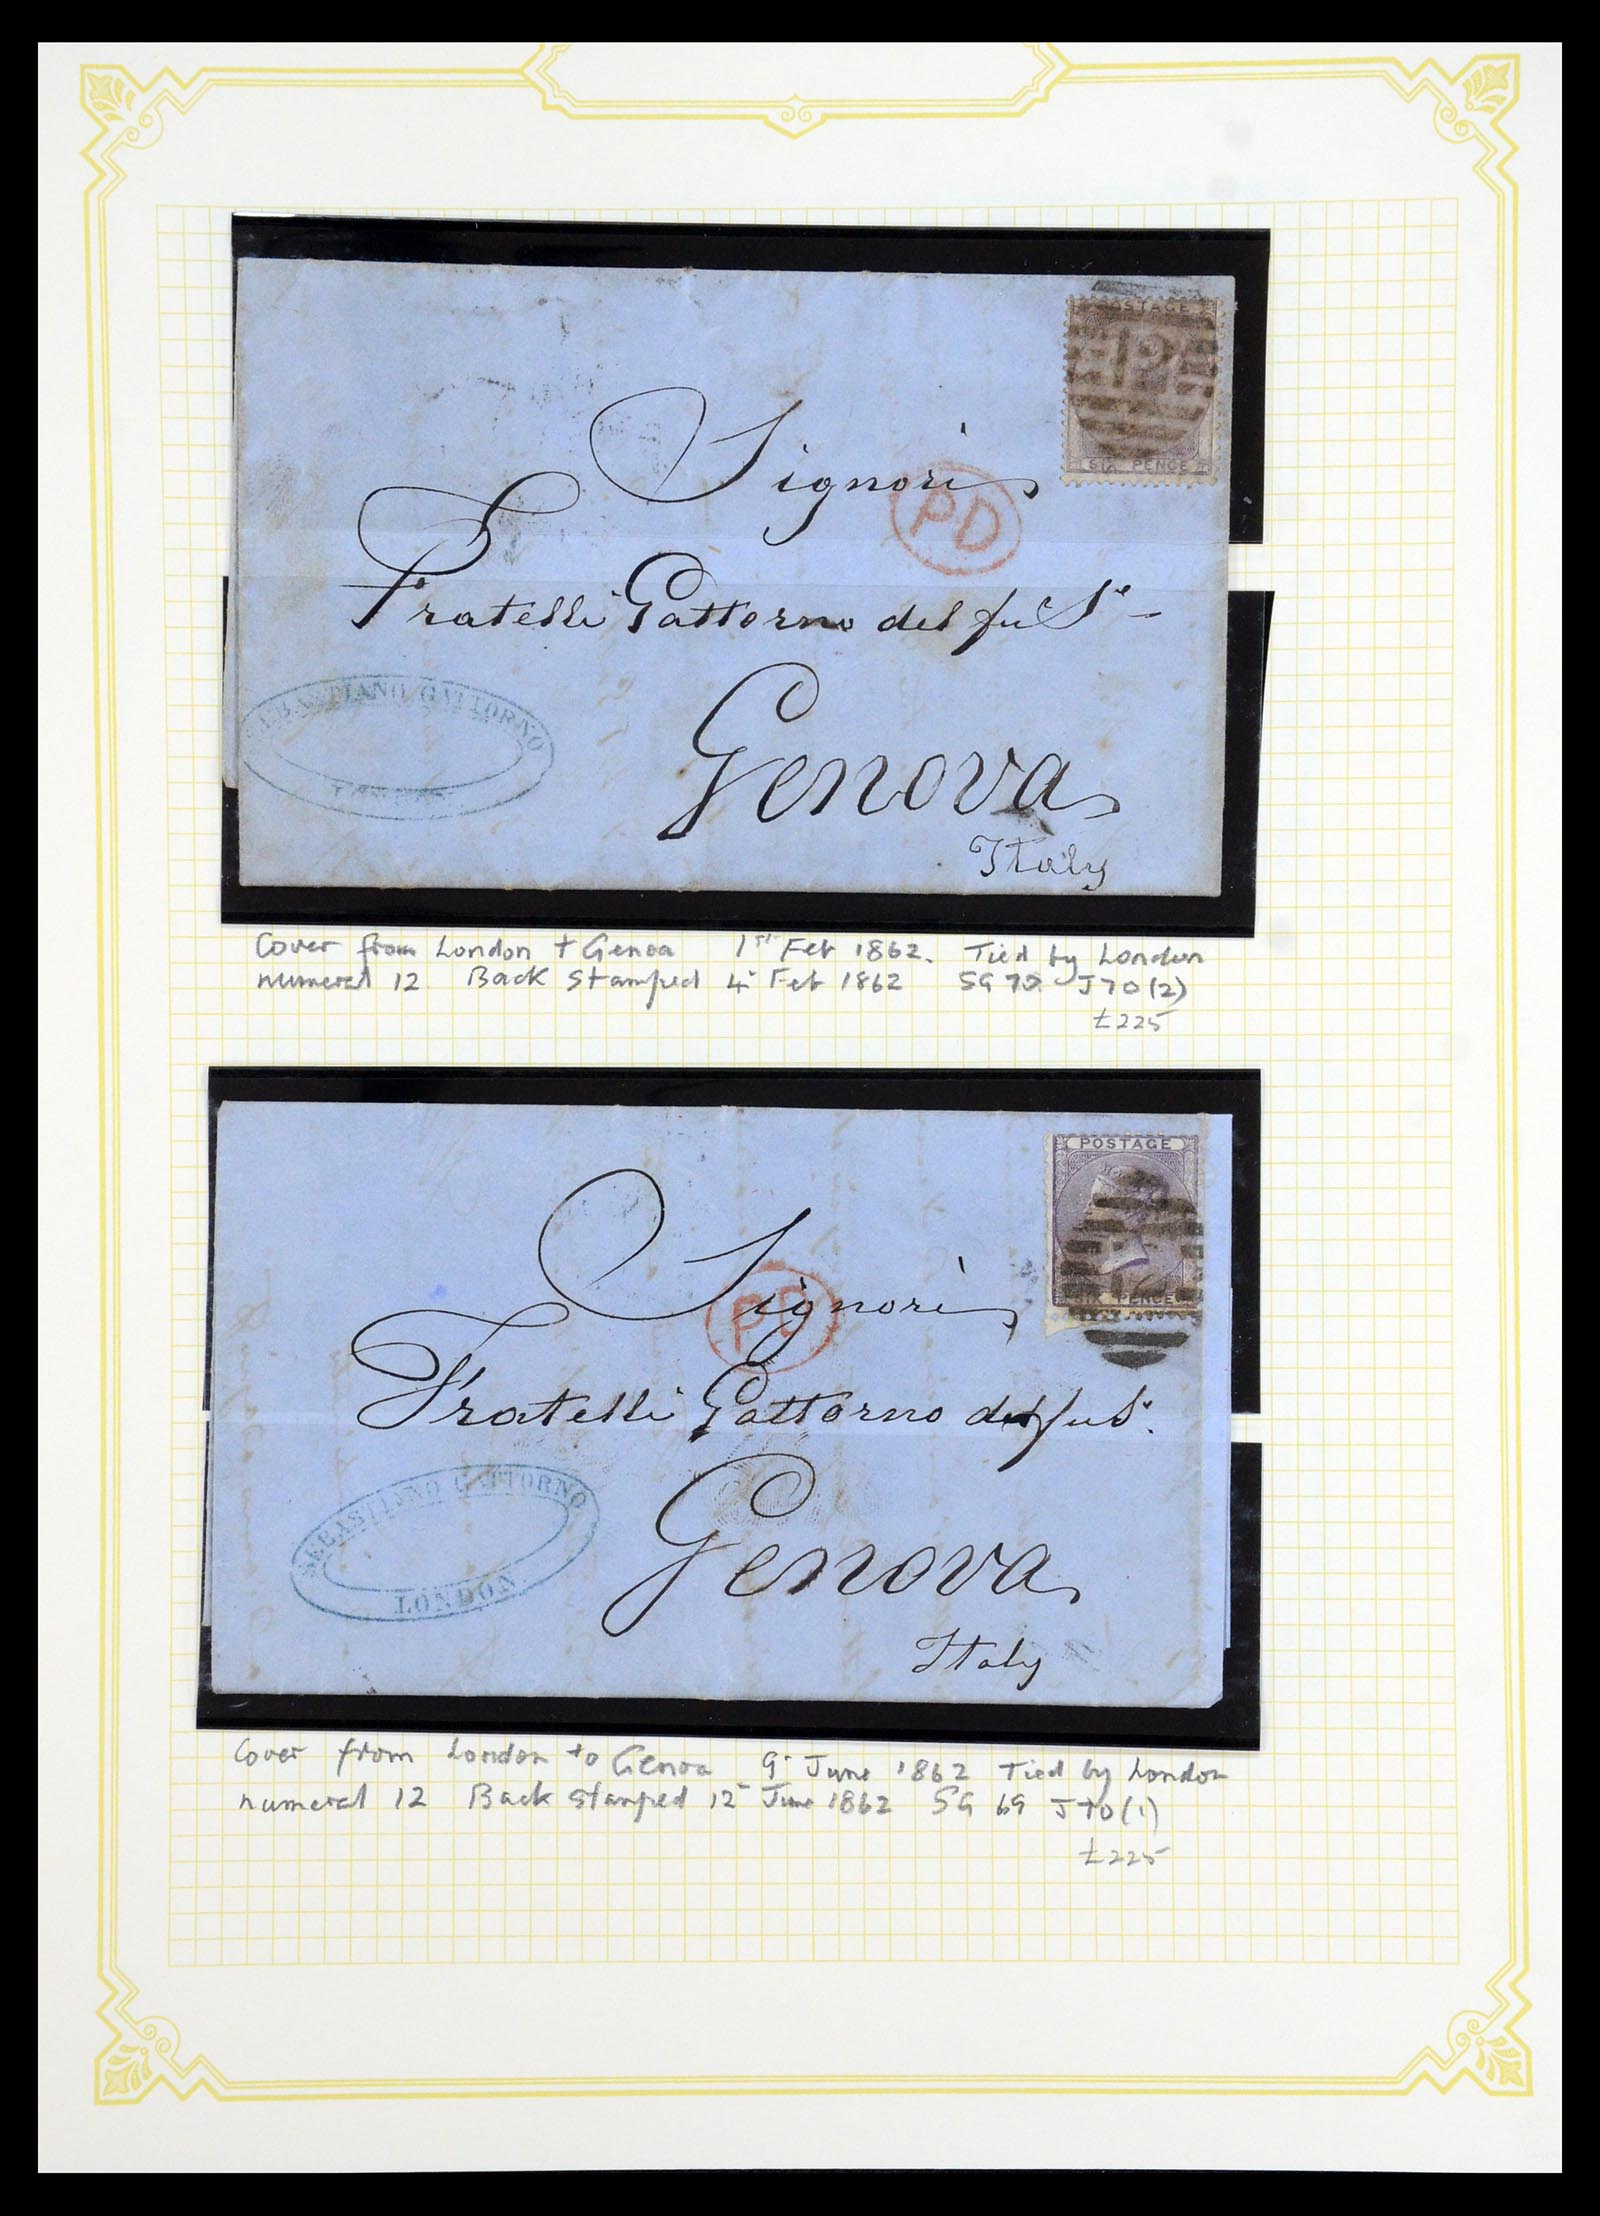 POSTAGE
12
SIX PENCE
Signori
PD
Fratelli Gattorno del fu Se
SEBASTIANO GATTORNO
LONDON
Genova
Italy
Cover from London t Genoa 1st Feb 1862. Tied by London
numeral 12 Back Stamped 4 Feb 1862 SG 70 J70(2)
£225
POSTAGE
SIX PENCE
Signori
PD
Fratelli Gattorno del fu Se.
SEBASTIANO GATTORNO
LONDON
Genova
Italy
Cover from London to Genoa 9 June 1862 Tied by London
numeral 12 Back stamped 12 June 1862 SG 69 J70(1)
£225